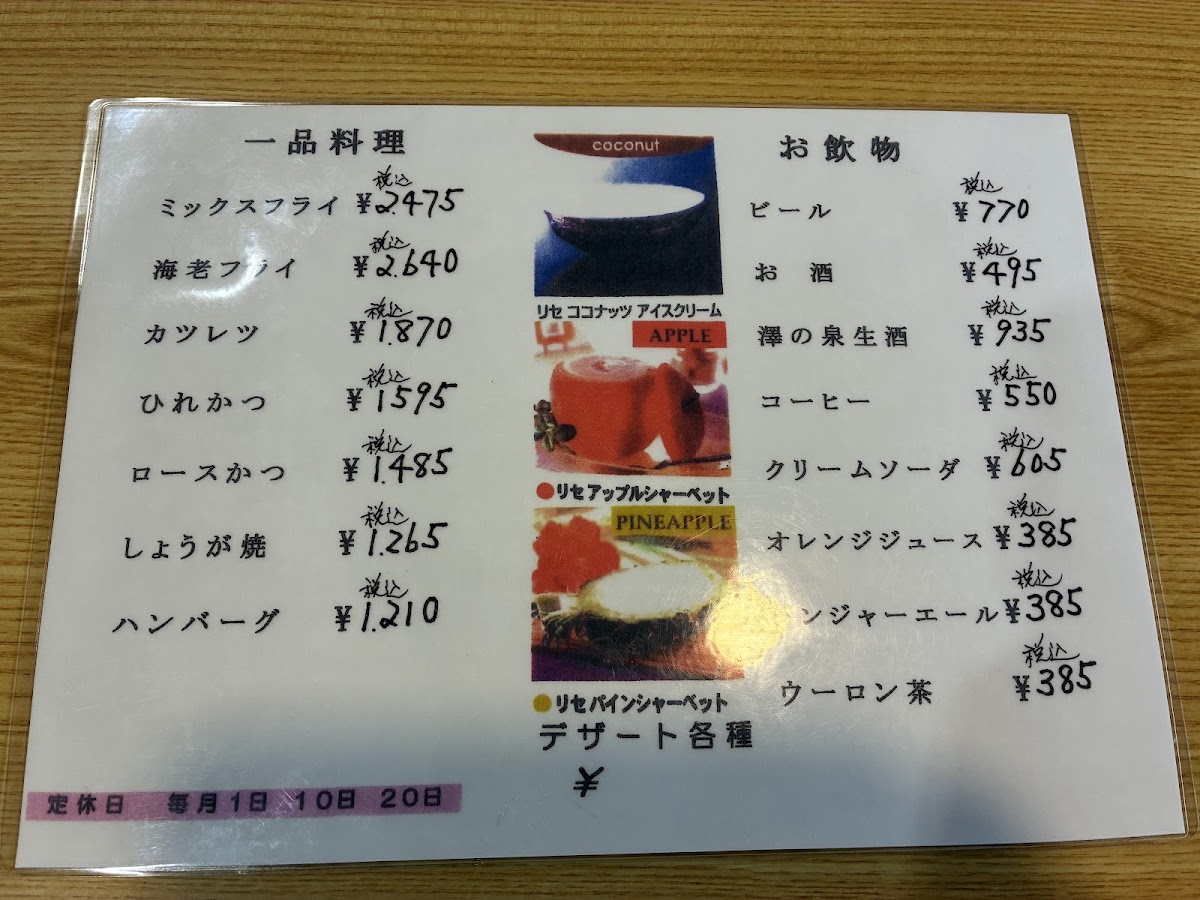 一品料理
税込
ミックスフライ ¥2.475
税込
海老フライ ¥2.640
税込
カツレツ ¥1.870
税込
ひれかつ ¥1595
税込
ロースかつ ¥1.485
税込
しょうが焼 ¥1.265
税込
ハンバーグ ¥1.210
定休日 毎月1日 10日 20日
coconut
リセ ココナッツ アイスクリーム
APPLE
●リセ アップルシャーベット
PINEAPPLE
●リセ パインシャーベット
デザート各種
¥
お飲物
税込
ビール ¥770
税込
お酒 ¥495
税込
澤の泉生酒 ¥935
税込
コーヒー ¥550
税込
クリームソーダ ¥605
税込
オレンジジュース ¥385
税込
ンジャーエール ¥385
税込
ウーロン茶 ¥385